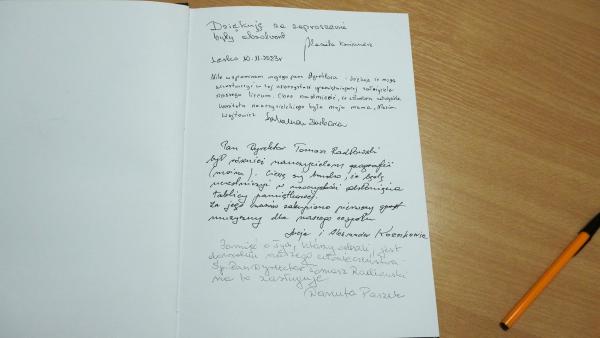 Dziękuję za zaproszenie
były absolwent
Lesko 10.11.2023r
Mile wspominam mojego pana Dyrektora i
uczestniczyć w tej uroczystości upamiętniającej założyciela
naszego liceum. Chcę nadmienić, że członkiem
nauczycielskiego była moja mama, Maria
Wojtowicz
Pan Dyrektor Tomasz Radkowski
był również nauczycielem geografii
(moim). Cieszę się bardzo, że będę
uczestniczyć w uroczystości odsłonięcia
tablicy pamiątkowej.
Za jego czasów zakupiono pierwszy sprzęt
muzyczny dla naszego zespołu
i Aleksander
Pamięć o tych, którzy odeszli, jest
dowodem naszego człowieczeństwa
Śp. Pan Dyrektor Tomasz Radkowski
na to zasługuje
Danuta Paszek